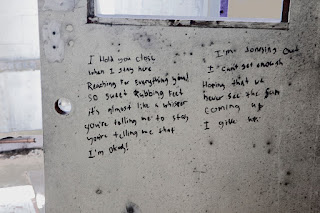 I Hold you close
when I stay here
Reaching for everything you all
so sweet Rubbing Feet
it's almost like a whisper
you're telling me to stay
you're telling me that
I'm Okay!
I'm Jonesing Out
I can't get enough
Hoping that we
never see the sun
coming up
I give up.